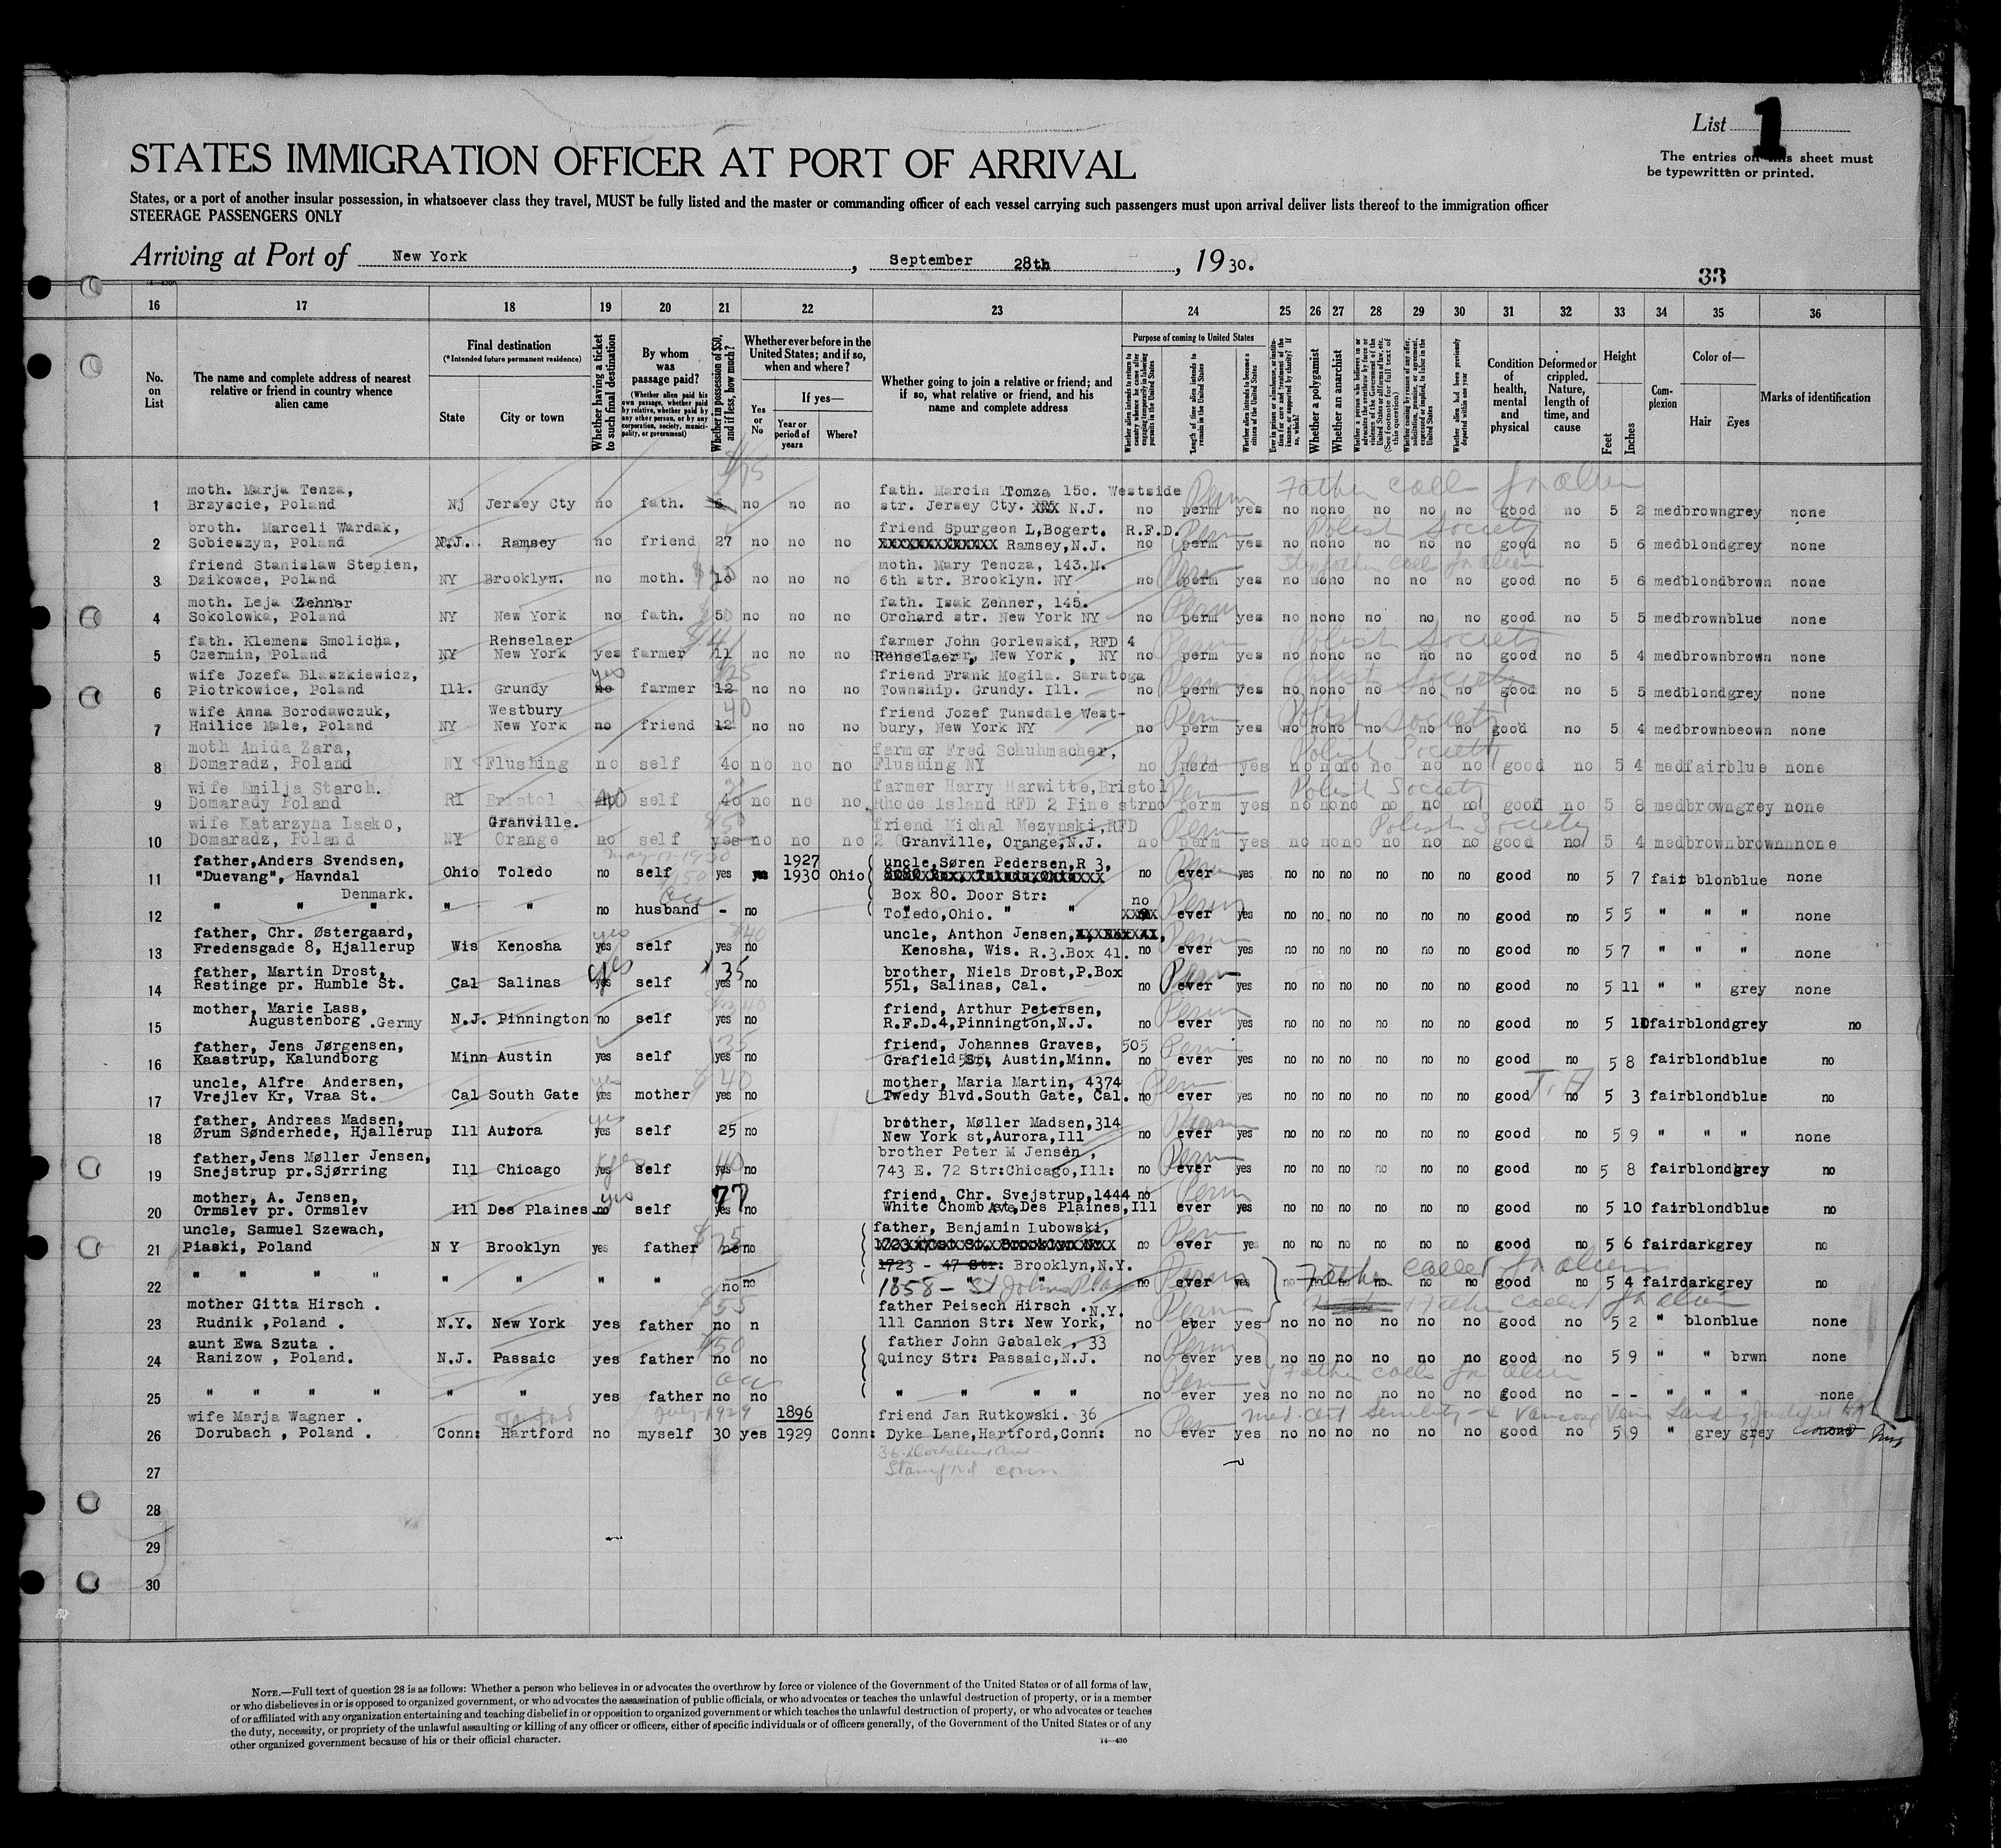 List 1
The entries on this sheet must
be typewritten or printed.
STATES IMMIGRATION OFFICER AT PORT OF ARRIVAL
States, or a port of another insular possession, in whatsoever class they travel, MUST be fully listed and the master or commanding officer of each vessel carrying such passengers must upon arrival deliver lists thereof to the immigration officer
STEERAGE PASSENGERS ONLY
Arriving at Port of New York, September 28th, 1930.
33
16 17 18 19 20 21 22 23 24 25 26 27 28 29 30 31 32 33 34 35 36
No. on List
The name and complete address of nearest relative or friend in country whence alien came
Final destination
(*Intended future permanent residence)
State
City or town
Whether having a ticket to such final destination
By whom was passage paid?
(Whether alien paid his own passage, whether paid by relative, whether paid by any other person, or by any corporation, society, municipality, or government)
Whether in possession of $50, and if less, how much?
Whether ever before in the United States; and if so, when and where?
Yes or No
If yes—
Year or period of years
Where?
Whether going to join a relative or friend; and if so, what relative or friend, and his name and complete address
Purpose of coming to United States
Whether alien intends to return to country whence he came after engaging temporarily in laboring pursuits in the United States
Length of time alien intends to remain in the United States
Whether alien intends to become a citizen of the United States
Whether a polygamist
Whether an anarchist
Whether alien had been previously deported within one year
Condition of health, mental and physical
Deformed or crippled. Nature, length of time, and cause
Height
Feet
Inches
Complexion
Color of—
Hair
Eyes
Marks of identification
$75
moth. Marja Tenza, fath. Marcin Tomza 150. Westside Perm Father called for alien
1 Brzyscie, Poland Nj Jersey Cty no fath. 6 no no no str. Jersey Cty. XXX N.J. no perm yes no no no no no no good no 5 2 med brown grey none
broth. Marceli Wardak, friend Spurgeon L, Bogert. R.F.D. Perm Polish Society
2 Sobieszyn, Poland N.J. Ramsey no friend 27 no no no XXXXXXXXXXXXXX Ramsey, N.J. no perm yes no no no no no no good no 5 6 med blond grey none
friend Stanislaw Stepien, moth. Mary Tencza, 143.N. Perm Stepfather called for alien
3 Dzikowce, Poland NY Brooklyn. no moth. 10 no no no 6th str. Brooklyn. NY no perm yes no no no no no no good no 5 6 med blond brown none
moth. Leja Zehner fath. Isak Zehner, 145. Perm
4 Sokolowka, Poland NY New York no fath. 5 no no no Orchard str. New York NY no perm yes no no no no no no good no 5 5 med brown blue none
fath. Klemens Smolicha, Renselaer $41 farmer John Gorlewski, RFD 4 Perm Polish Society
5 Czermin, Poland NY New York yes farmer 11 no no no Renselaer, New York, NY no perm yes no no no no no no good no 5 4 med brown brown none
wife Jozefa Blaszkiewicz, yes $25 friend Frank Mogila. Saratoga Perm Polish Society
6 Piotrkowice, Poland Ill. Grundy no farmer 12 no no no Township. Grundy. Ill. no perm yes no no no no no no good no 5 5 med blond grey none
wife Anna Borodawczuk, Westbury 40 friend Jozef Tunsdale West- Perm Polish Society
7 Hnilice Male, Poland NY New York no friend 12 no no no bury, New York NY no perm yes no no no no no no good no 5 4 med brown beown none
moth Anida Zara, farmer Fred Schuhmacher, Perm Polish Society
8 Domaradz, Poland NY Flushing no self 40 no no no Flushing NY no perm yes no no no no no no good no 5 4 med fair blue none
wife Emilja Starch. farmer Harry Harwitte, Bristol Perm Polish Society
9 Domarady Poland RI Bristol no self 40 no no no. Rhode Island RFD 2 Pine str no perm yes no no no no no no good no 5 8 med brown grey none
wife Katarzyna Lasko, Granville. $50 friend Michal Mezynski, RFD Perm Polish Society
10 Domaradz, Poland NY Orange no self yes no no no 2 Granville, Orange, N.J. no perm yes no no no no no no good no 5 4 med brown brown none
father, Anders Svendsen, May-17-1930 1927 uncle, Søren Pedersen, R 3, Perm
11 "Duevang", Havndal Ohio Toledo no self yes yes 1930 Ohio no ever yes no no no no no no good no 5 7 fair blon blue none
Denmark. Box 80. Door Str: no Perm
12 " " " " " no husband - no Toledo, Ohio. " " XXXX ever yes no no no no no no good no 5 5 " " " none
father, Chr. Østergaard, yes $40 uncle, Anthon Jensen, Perm
13 Fredensgade 8, Hjallerup Wis Kenosha yes self yes no Kenosha, Wis. R.3. Box 41. no ever yes no no no no no no good no 5 7 " " " none
father, Martin Drost, yes $35 brother, Niels Drost, P.Box Perm
14 Restinge pr. Humble St. Cal Salinas yes self yes no 551, Salinas, Cal. no ever yes no no no no no no good no 5 11 " " grey none
mother, Marie Lass, friend, Arthur Petersen, Perm
15 Augustenborg .Germy N.J. Pinnington no self yes no R.F.D.4, Pinnington, N.J. no ever yes no no no no no no good no 5 10 fair blond grey no
father, Jens Jørgensen, 35 friend, Johannes Graves, 505 Perm
16 Kaastrup, Kalundborg Minn Austin yes self yes no Grafield Str, Austin, Minn. no ever yes no no no no no no good no 5 8 fair blond blue no
uncle, Alfre Andersen, yes $40 mother, Maria Martin, 4374 Perm
17 Vrejlev Kr, Vraa St. Cal South Gate yes mother yes no Twedy Blvd. South Gate, Cal. no ever yes no no no no no no good no 5 3 fair blond blue no
father, Andreas Madsen, yes brother, Møller Madsen, 314 Perm
18 Ørum Sønderhede, Hjallerup Ill Aurora yes self 25 no New York st, Aurora, Ill no ever yes no no no no no no good no 5 9 " " " none
father, Jens Møller Jensen, yes 40 brother Peter M Jensen, Perm
19 Snejstrup pr. Sjørring Ill Chicago yes self yes no 743 E. 72 Str: Chicago, Ill: no ever yes no no no no no no good no 5 8 fair blond grey no
mother, A. Jensen, yes 77 friend, Chr. Svejstrup, 1444 no Perm
20 Ormslev pr. Ormslev Ill Des Plaines no self yes no White Chomb Ave, Des Plaines, Ill ever yes no no no no no no good no 5 10 fair blond blue no
uncle, Samuel Szewach, $75 father, Benjamin Lubowski, Perm
21 Piaski, Poland N Y Brooklyn yes father no no no ever yes no no no no no no good no 5 6 fair dark grey no
1723 - 47 Str: Brooklyn, N.Y. Perm Father called for alien
22 " " " " " " " " no no 1858 - St Johns Place no ever yes no no no no no no good no 5 4 fair dark grey no
mother Gitta Hirsch. $55 father Peisech Hirsch. N.Y. Perm Father called for alien
23 Rudnik, Poland. N.Y. New York yes father no n 111 Cannon Str: New York, no ever yes no no no no no no good no 5 2 " blon blue none
aunt Ewa Szuta. $50 father John Gabalek, 33 Perm
24 Ranizow, Poland. N.J. Passaic yes father no no Quincy Str: Passaic, N.J. no ever yes no no no no no no good no 5 9 " " brwn none
Perm Father called for alien
25 " " " " " " yes father no no " " " " no ever yes no no no no no no good no - - " " " none
wife Marja Wagner. July-1929 1896 friend Jan Rutkowski. 36 Perm Med. cert Senility & Varicose Veins
26 Dorubach, Poland. Conn: Hartford no myself 30 yes 1929 Conn: Dyke Lane, Hartford, Conn: no ever yes no no no no no no good no 5 9 " grey grey none
27 Stamford Conn
28
29
30
NOTE.—Full text of question 28 is as follows: Whether a person who believes in or advocates the overthrow by force or violence of the Government of the United States or of all forms of law,
or who disbelieves in or is opposed to organized government, or who advocates the assassination of public officials, or who advocates or teaches the unlawful destruction of property, or is a member
of or affiliated with any organization entertaining and teaching disbelief in or opposition to organized government or which teaches the unlawful destruction of property, or who advocates or teaches
the duty, necessity, or propriety of the unlawful assaulting or killing of any officer or officers, either of specific individuals or of officers generally, of the Government of the United States or of any
other organized government because of his or their official character.
14—430